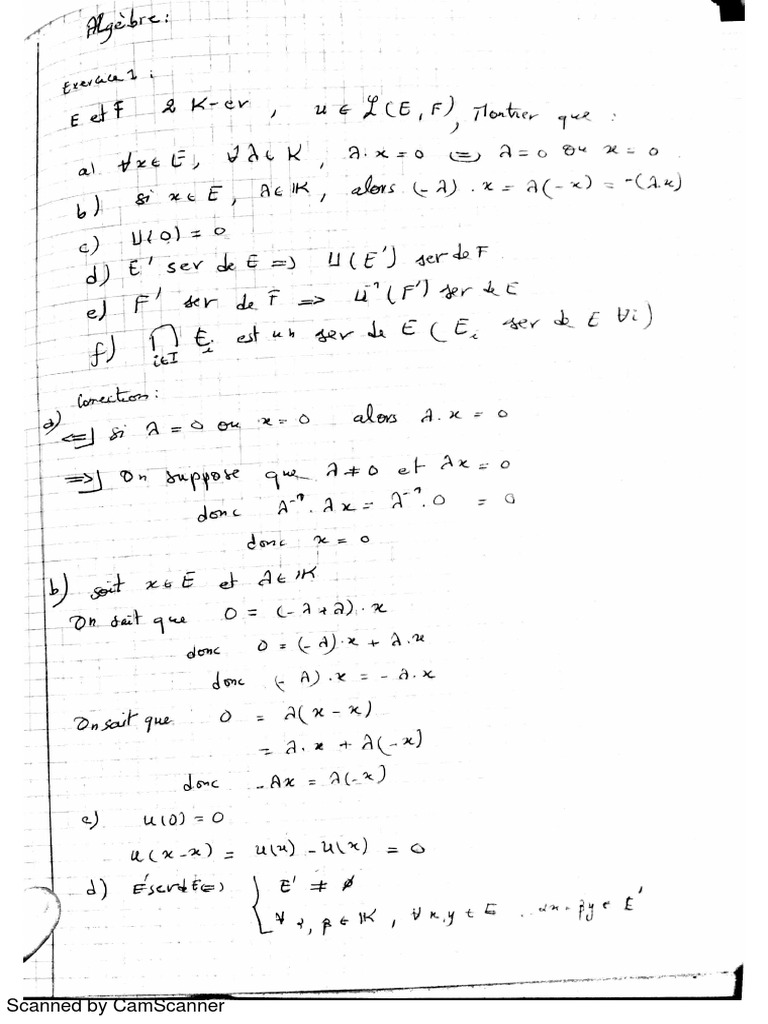 Algèbre:
Exercice 1:
E et F 2 K-ev, u ∈ L(E, F), Montrer que:
a) ∀x∈E, ∀λ∈K, λ.x=0 ⟺ λ=0 ou x=0
b) si x∈E, λ∈K, alors (-λ).x = λ(-x) = -(λ.x)
c) U(0) = 0
d) E' sev de E => U(E') sev de F
e) F' sev de F => U⁻¹(F') sev de E
f) ∩ i∈I Ei est un sev de E (Ei sev de E ∀i)
Correction:
a) <=] si λ=0 ou x=0 alors λ.x=0
=>] On suppose que λ≠0 et λx=0
donc λ⁻¹.λx = λ⁻¹.0 = 0
donc x=0
b) soit x∈E et λ∈K
On sait que 0 = (-λ+λ).x
donc 0 = (-λ).x + λ.x
donc (-λ).x = -λ.x
On sait que 0 = λ(x-x)
= λ.x + λ(-x)
donc -λx = λ(-x)
c) u(0)=0
u(x-x) = u(x) - u(x) = 0
d) E' sev de E <=> { E' ≠ ∅
∀ α, β ∈ K, ∀x,y ∈ E αx+βy ∈ E'
Scanned by CamScanner